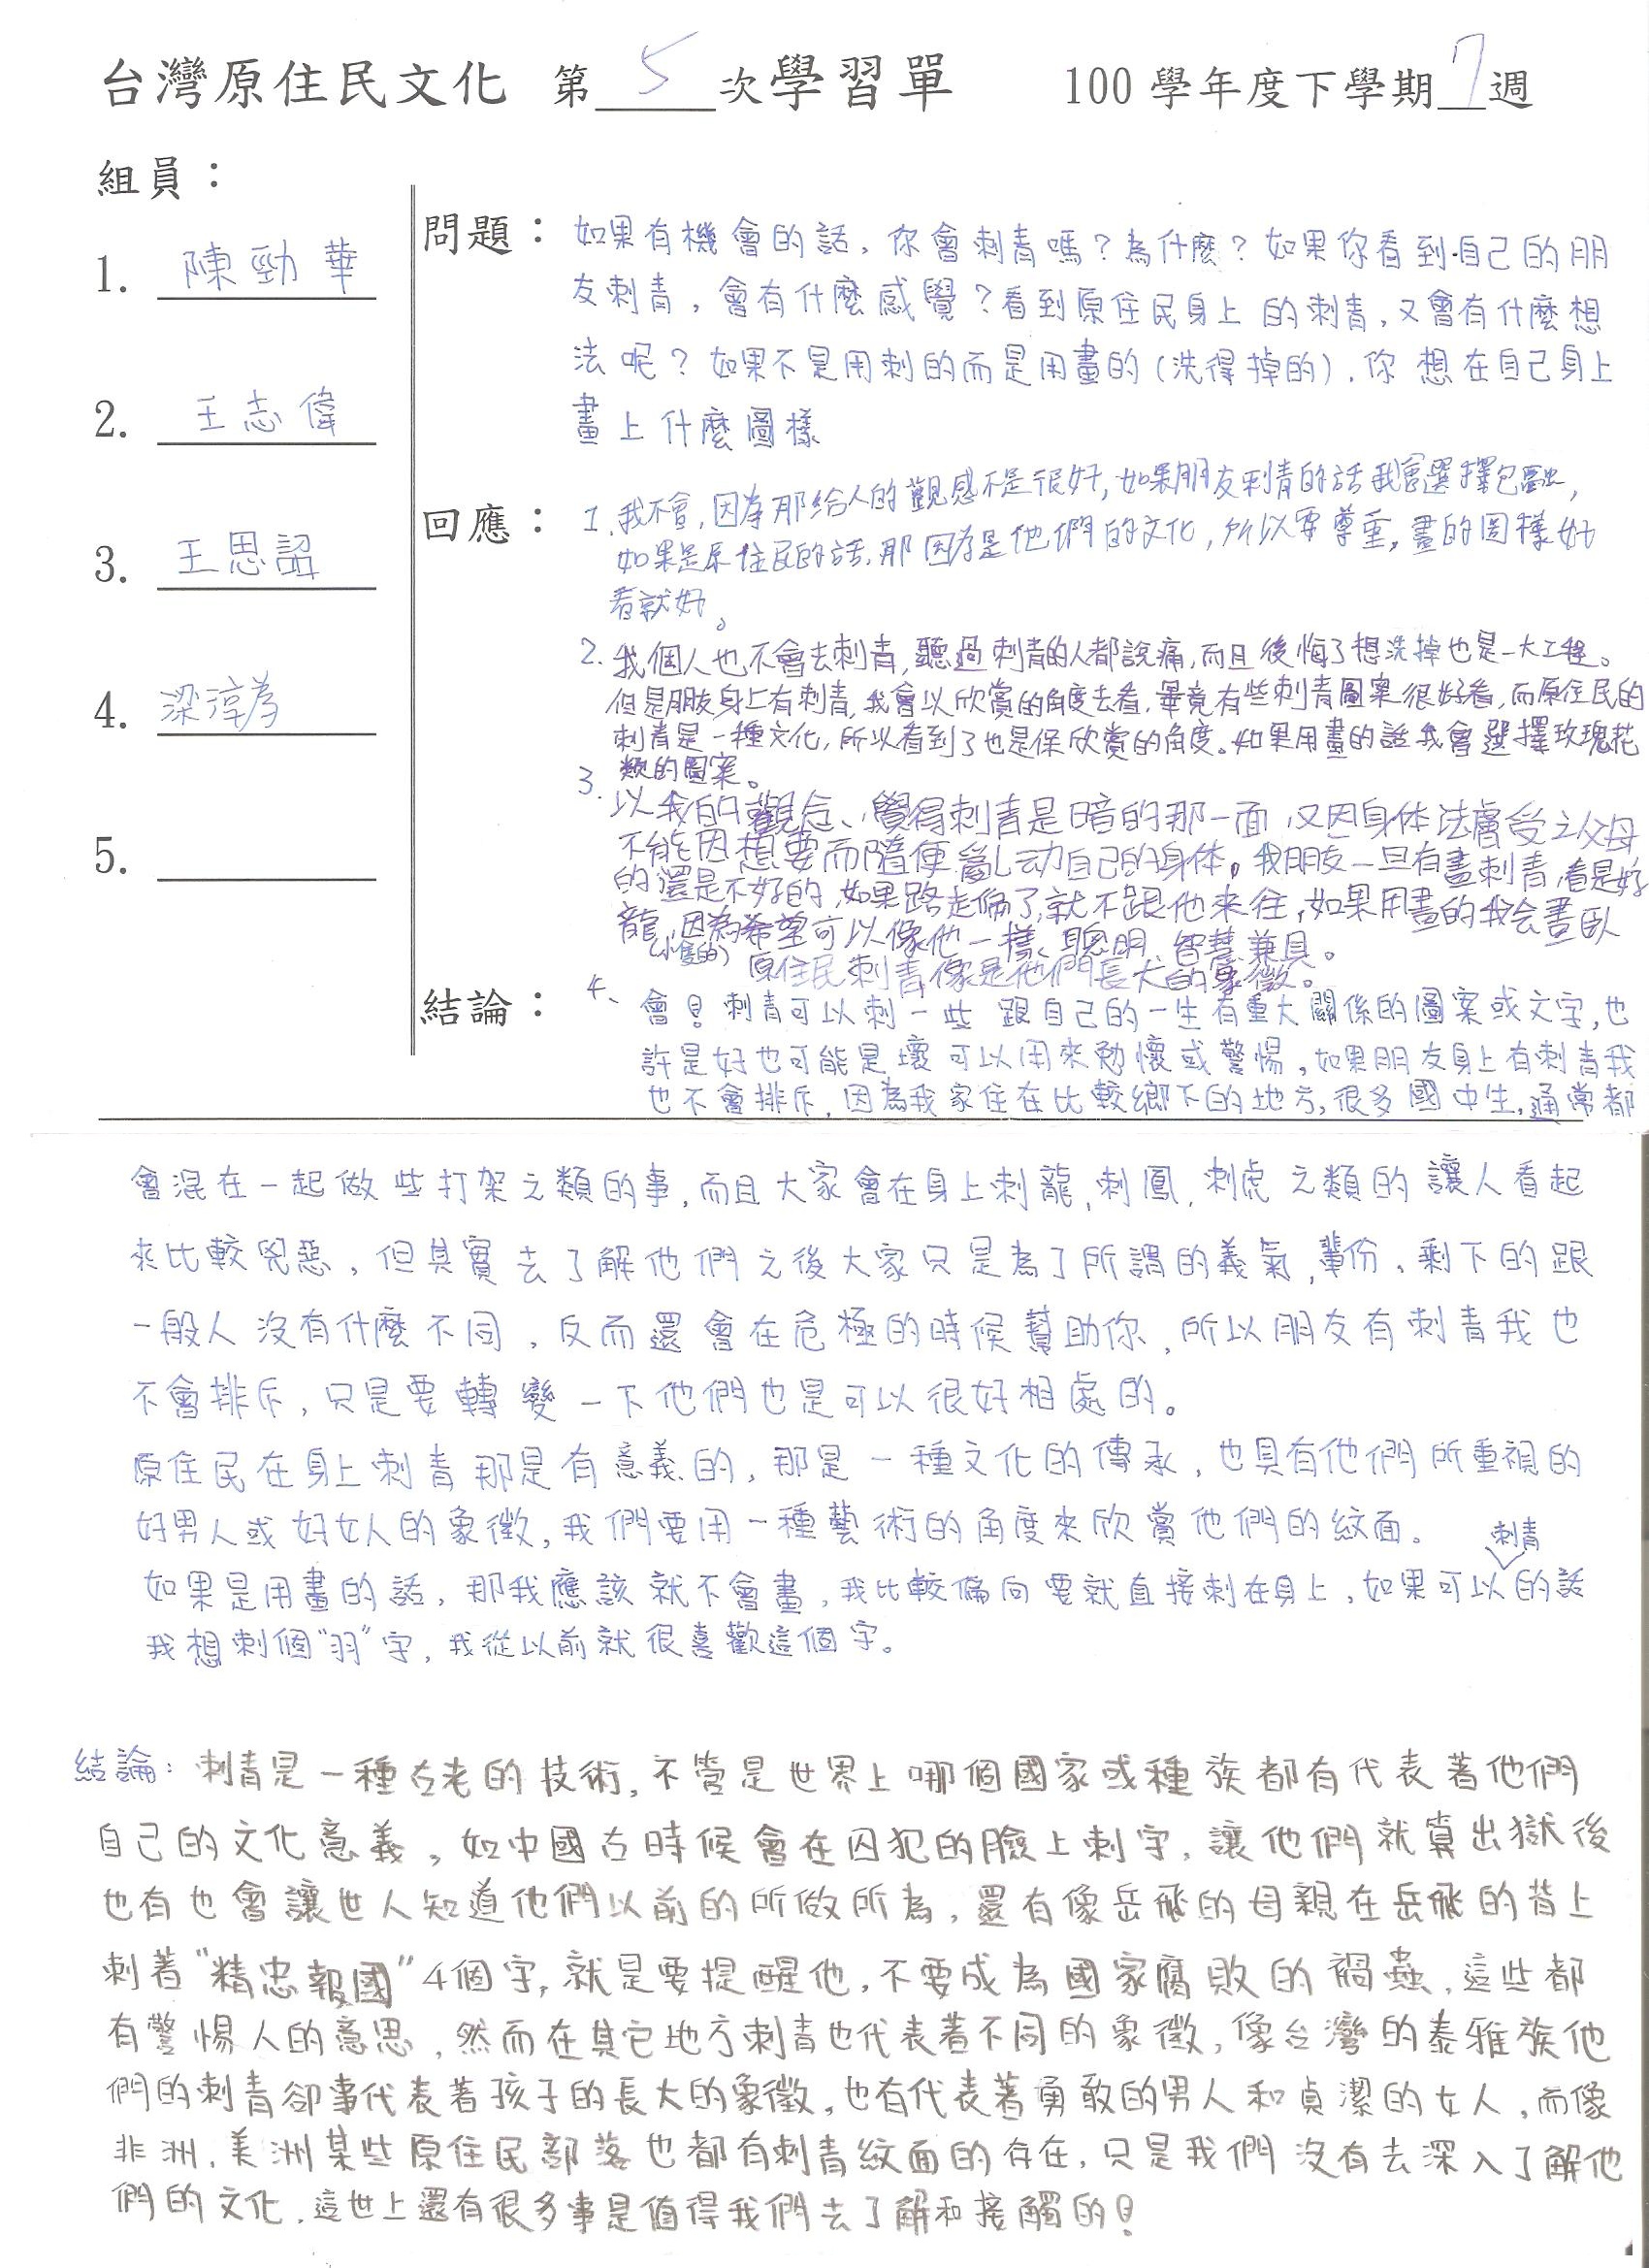 台灣原住民文化 第 5 次學習單 100 學年度下學期 7 週
組員：
1. 陳勁華
2. 王志偉
3. 王思詔
4. 梁淳為
5.
問題：
如果有機會的話，你會刺青嗎？為什麼？如果你看到自己的朋
友刺青，會有什麼感覺？看到原住民身上的刺青，又會有什麼想
法呢？如果不是用刺的而是用畫的(洗得掉的)，你想在自己身上
畫上什麼圖樣
回應：
1. 我不會，因為那給人的觀感不是很好，如果朋友刺青的話我會選擇包容，
如果是原住民的話，那因為是他們的文化，所以要尊重，畫的圖樣好
看就好。
2. 我個人也不會去刺青，聽過刺青的人都說痛，而且後悔了想洗掉也是一大工程。
但是朋友身上有刺青，我會以欣賞的角度去看，畢竟有些刺青圖案很好看，而原住民的
刺青是一種文化，所以看到了也是保欣賞的角度。如果用畫的話我會選擇玫瑰花
類的圖案。
3. 以我的觀念、覺得刺青是暗的那一面，又因身体法膚受之父母
不能因想要而隨便亂动自己的身体，我朋友一旦有畫刺青，看是好
的還是不好的，如果路走偏了，就不跟他來往，如果用畫的我会畫臥
龍，因為希望可以像他一樣、聰明、智慧兼具。
原住民刺青，像是他們長大的象徵。
結論：
4、會！刺青可以刺一些跟自己的一生有重大關係的圖案或文字，也
許是好也可能是壞可以用來勉懷或警惕，如果朋友身上有刺青我
也不會排斥，因為我家住在比較鄉下的地方，很多國中生，通常都
會混在一起做些打架之類的事，而且大家會在身上刺龍，刺鳳，刺虎之類的讓人看起
來比較兇惡，但其實去了解他們之後大家只是為了所謂的義氣，輩份，剩下的跟
一般人沒有什麼不同，反而還會在危極的時候幫助你，所以朋友有刺青我也
不會排斥，只是要轉變一下他們也是可以很好相處的。
原住民在身上刺青那是有意義的，那是一種文化的傳承，也具有他們所重視的
好男人或好女人的象徵，我們要用一種藝術的角度來欣賞他們的紋面。
如果是用畫的話，那我應該就不會畫，我比較偏向要就直接刺在身上，如果可以刺青的話
我想刺個"羽"字，我從以前就很喜歡這個字。
結論：刺青是一種古老的技術，不管是世界上哪個國家或種族都有代表著他們
自己的文化意義，如中國古時候會在囚犯的臉上刺字，讓他們就算出獄後
也有也會讓世人知道他們以前的所做所為，還有像岳飛的母親在岳飛的背上
刺著"精忠報國"4個字，就是要提醒他，不要成為國家腐敗的禍蟲，這些都
有警惕人的意思，然而在其它地方刺青也代表著不同的象徵，像台灣的泰雅族他
們的刺青卻事代表著孩子的長大的象徵，也有代表著勇敢的男人和貞潔的女人，而像
非洲，美洲某些原住民部落也都有刺青紋面的存在，只是我們沒有去深入了解他
們的文化，這世上還有很多事是值得我們去了解和接觸的！